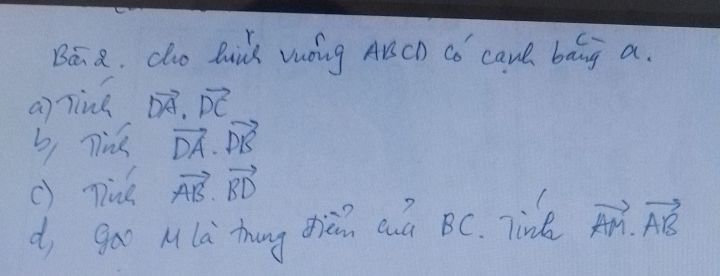 Bài 2. cho hình vuông ABCD có cạnh bằng a.
a) Tính $\overrightarrow{DA}.\overrightarrow{DC}$
b, Tính $\overrightarrow{DA}.\overrightarrow{DB}$
c) Tính $\overrightarrow{AB}.\overrightarrow{BD}$
d, gọi M là trung điểm của BC. Tính $\overrightarrow{AM}.\overrightarrow{AB}$